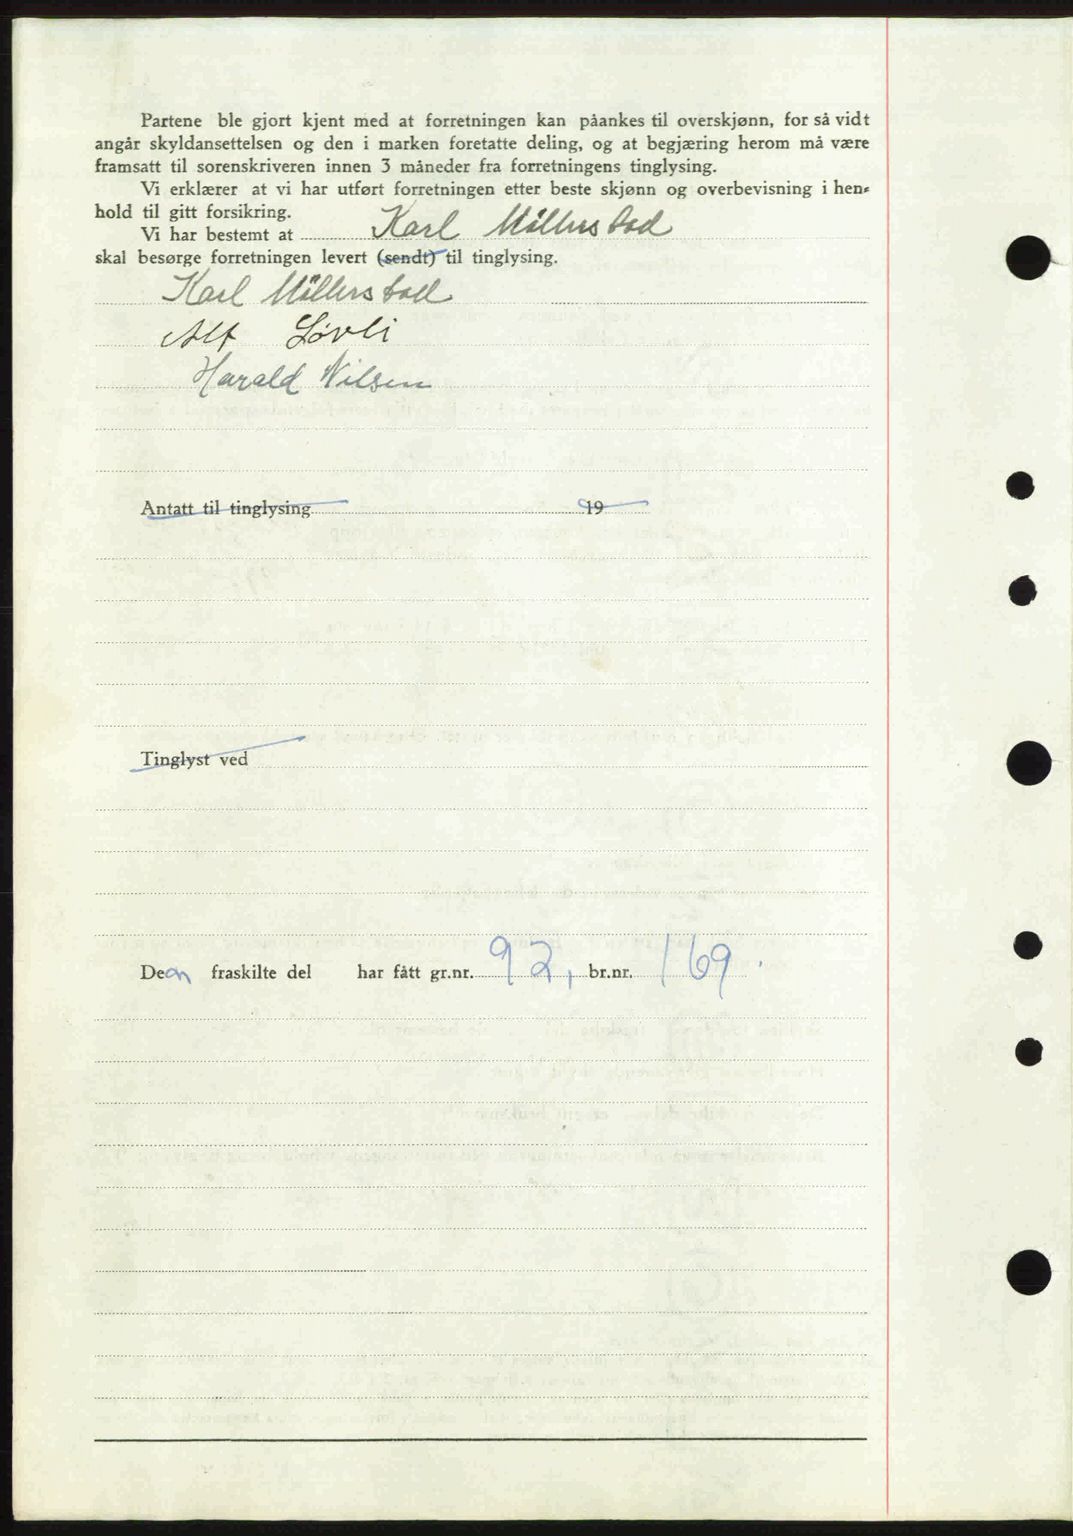 Partene ble gjort kjent med at forretningen kan påankes til overskjønn, for så vidt
angår skyldansettelsen og den i marken foretatte deling, og at begjæring herom må være
framsatt til sorenskriveren innen 3 måneder fra forretningens tinglysing.
Vi erklærer at vi har utført forretningen etter beste skjønn og overbevisning i hen-
hold til gitt forsikring.
Vi har bestemt at Karl Möllerstad
skal besørge forretningen levert (sendt) til tinglysing.
Karl Möllerstad
Alf Løvli
Harald Nilsen
Antatt til tinglysing 19
Tinglyst ved
Den fraskilte del har fått gr.nr. 92, br.nr. 169.